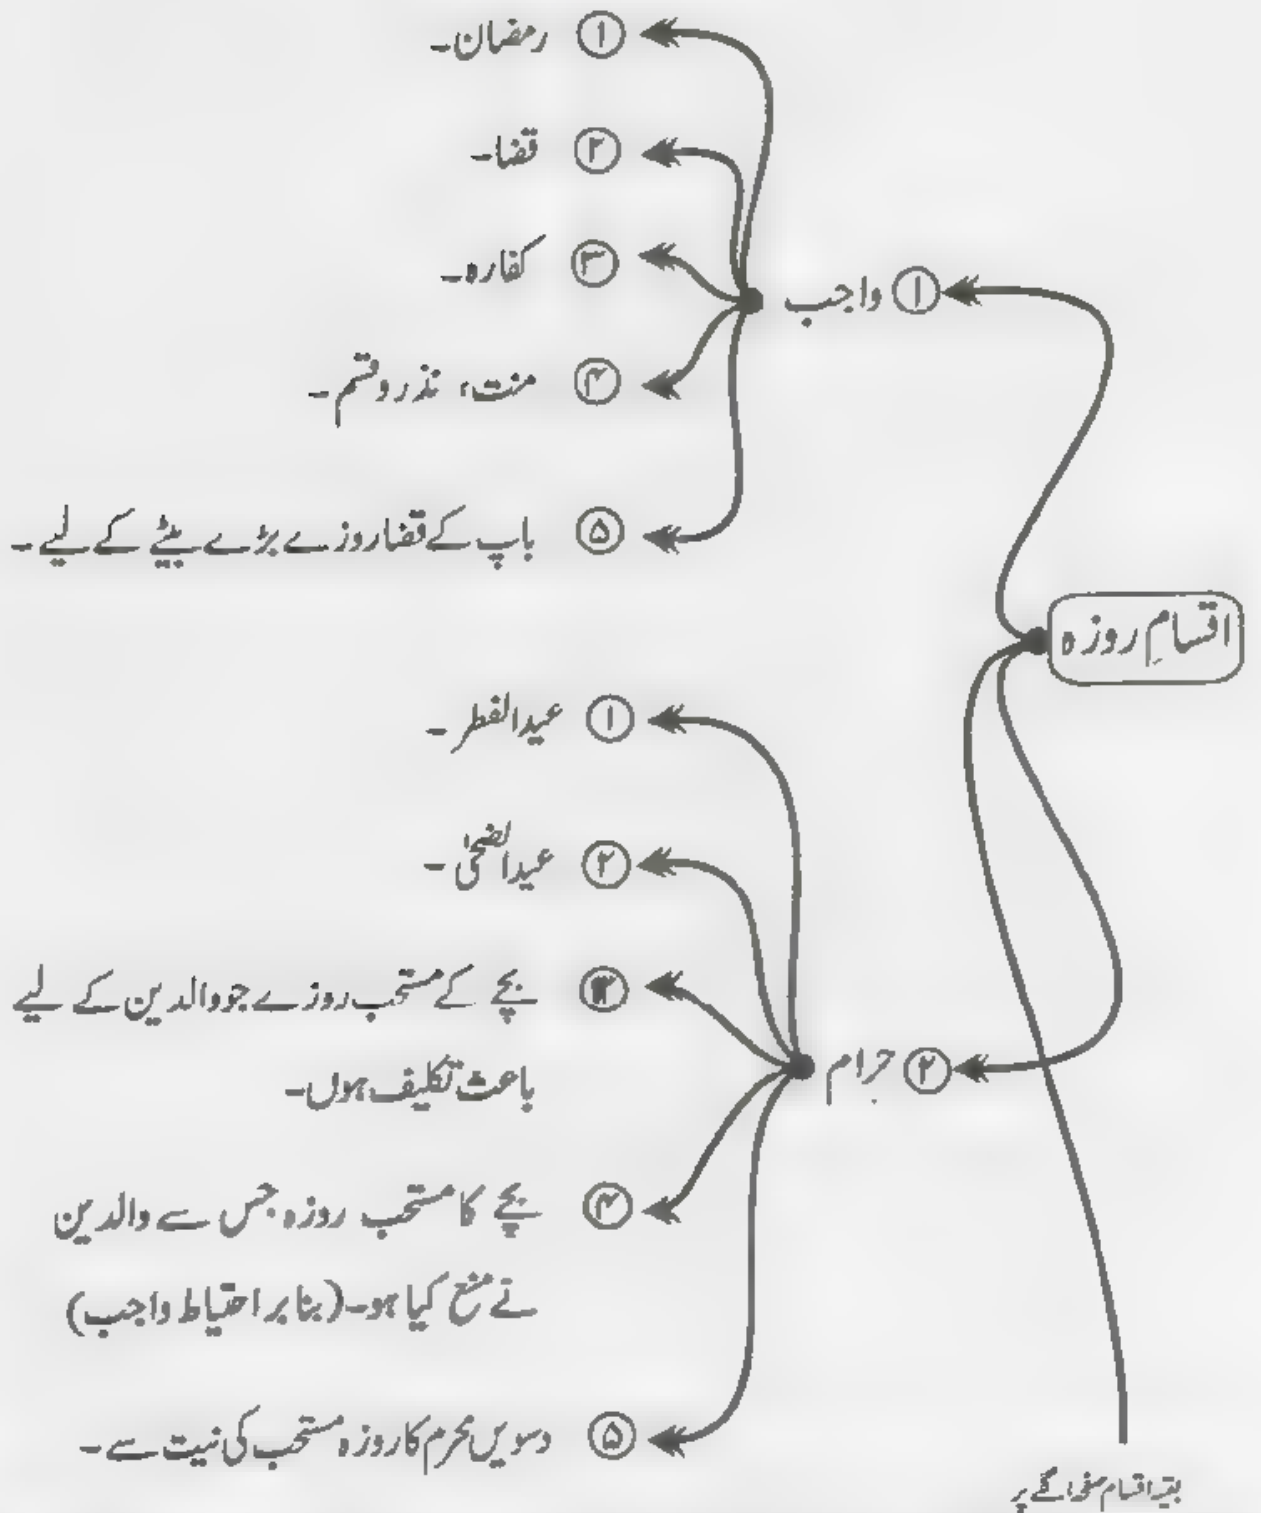 اقسامِ روزہ
① واجب
① رمضان۔
② قضا۔
③ کفارہ۔
④ منت، نذر و قسم۔
⑤ باپ کے قضا روزے بڑے بیٹے کے لیے۔
② حرام
① عید الفطر۔
② عید الضحیٰ۔
③ بچے کے مستحب روزے جو والدین کے لیے
باعث تکلیف ہوں۔
④ بچے کا مستحب روزہ جس سے والدین
نے منع کیا ہو۔ (بنا بر احتیاط واجب)
⑤ دسویں محرم کا روزہ مستحب کی نیت سے۔
بقیہ اقسام صفحہ اگلے پر